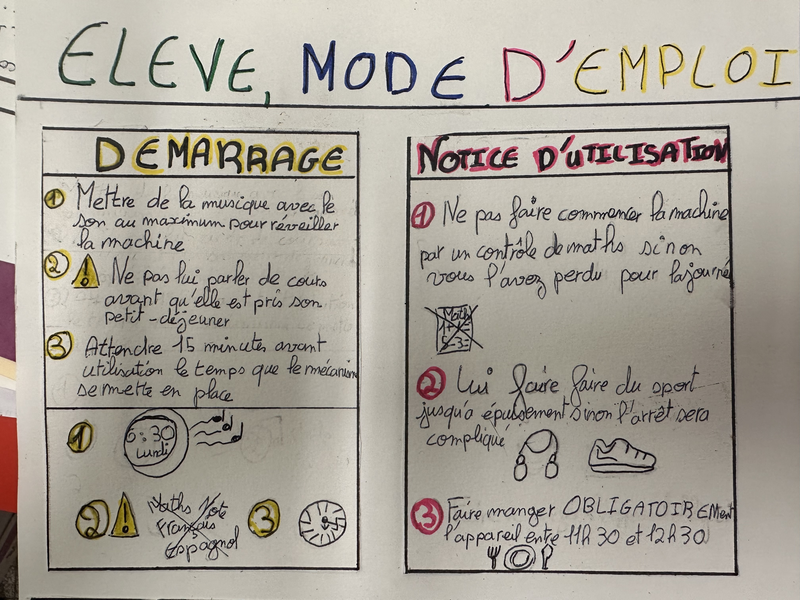 ELEVE, MODE D'EMPLOI
DEMARRAGE
1 Mettre de la musique avec le
son au maximum pour réveiller
la machine
2 Ne pas lui parler de cours
avant qu'elle est pris son
petit-déjeuner
3 Attendre 15 minutes avant
utilisation le temps que le mécanism
se mette en place
1
6:30
Lundi
2
Maths Note
Français
Espagnol
3
NOTICE D'UTILISATION
1 Ne pas faire commencer la machine
par un contrôle de maths sinon
vous l'avez perdu pour la journé
Maths
1+1=
5-3=
2 Lui faire faire du sport
jusqu'a épuisement sinon l'arrêt sera
compliqué
3 Faire manger OBLIGATOIREMENT
l'appareil entre 11h30 et 12h30